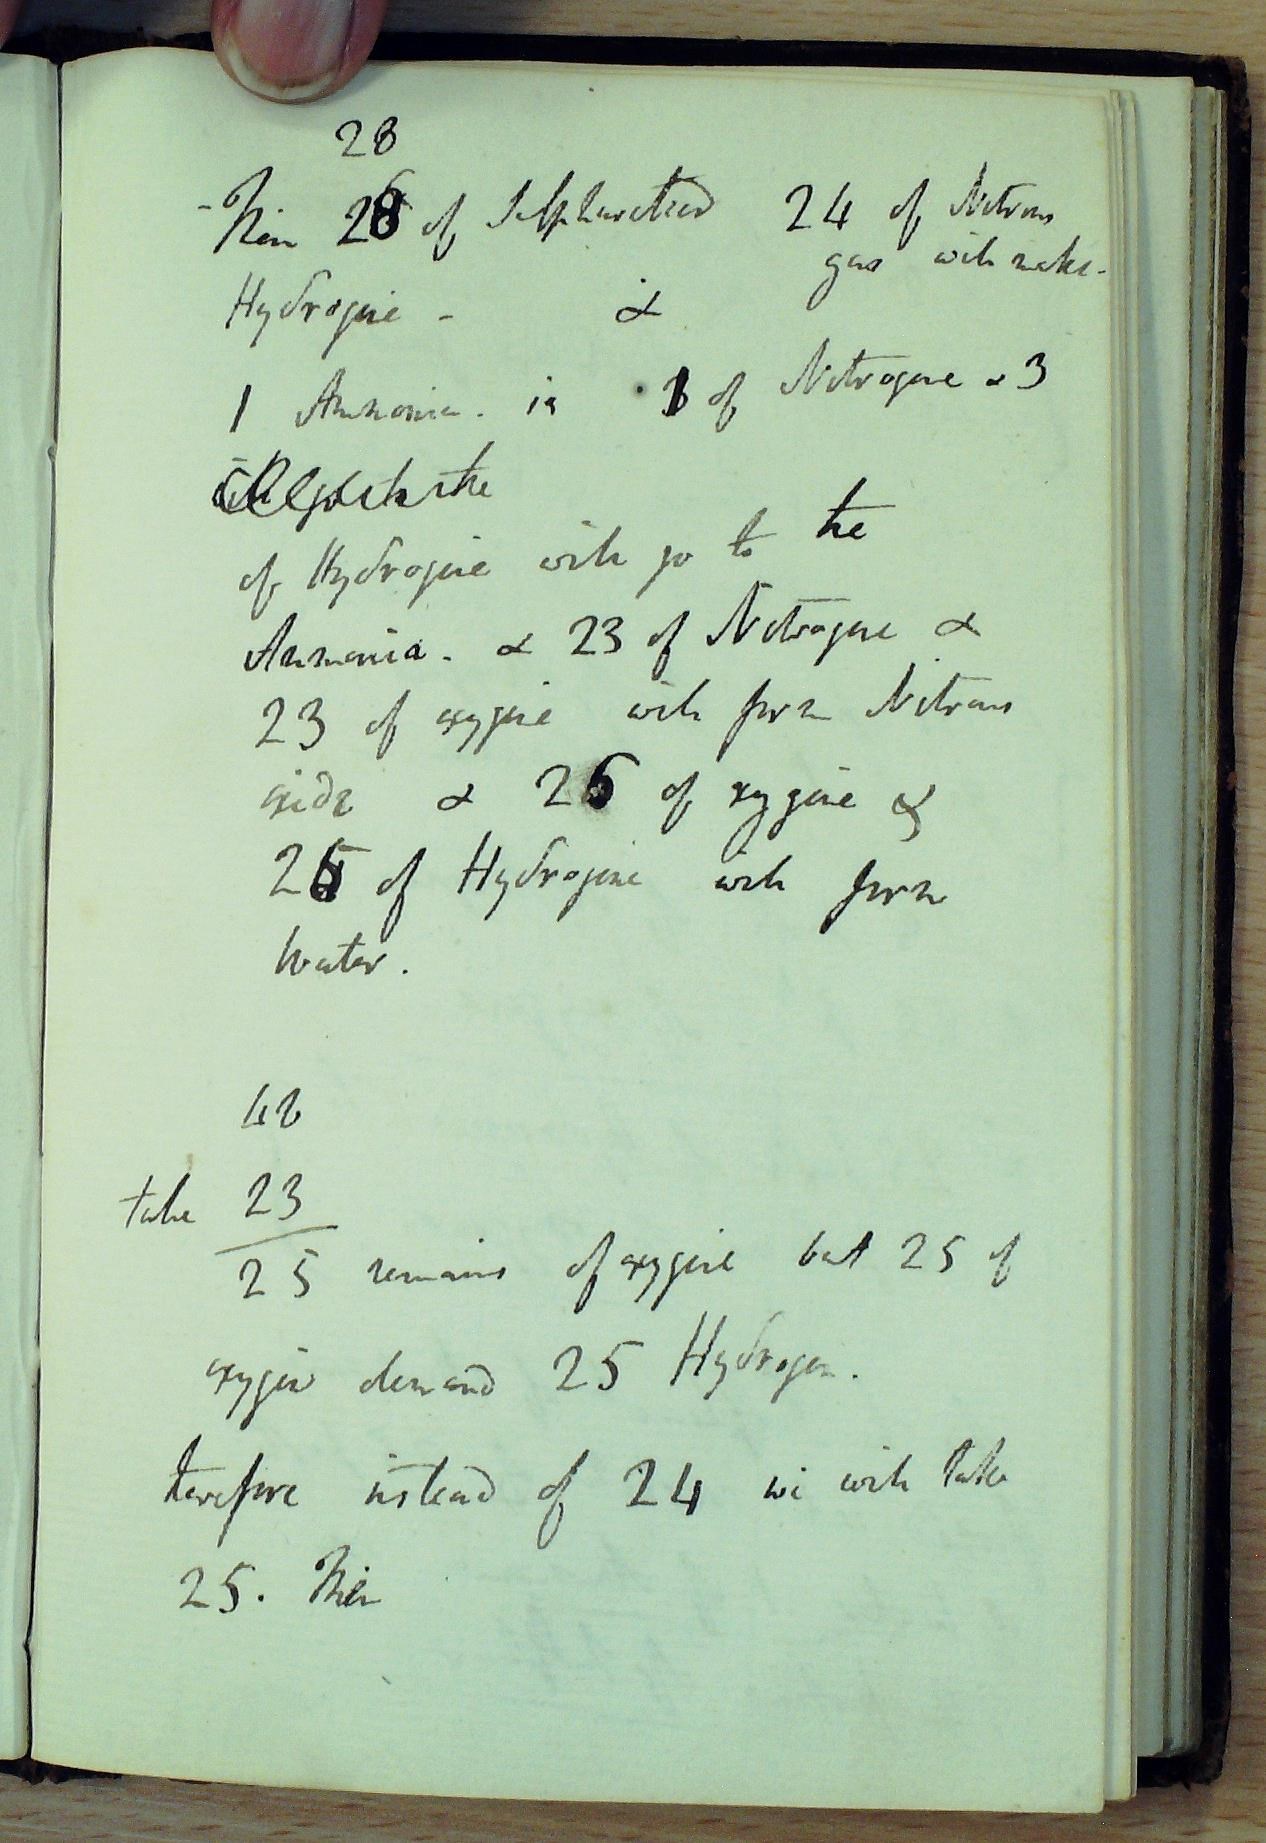 28
- Then 28 of Sulphuretted 24 of Nitrous
gas will make.
Hydrogene - &
1 Ammonia. is 1 of Nitrogene & 3
of Hydrogene will go to the
Ammonia. & 23 of Nitrogene &
23 of oxygene will form Nitrous
oxide & 26 of oxygene &
25 of Hydrogene will form
Water.
48
take 23
25 remains of oxygene but 25 of
oxygene demand 25 Hydrogen.
therefore instead of 24 we will take
25. Then